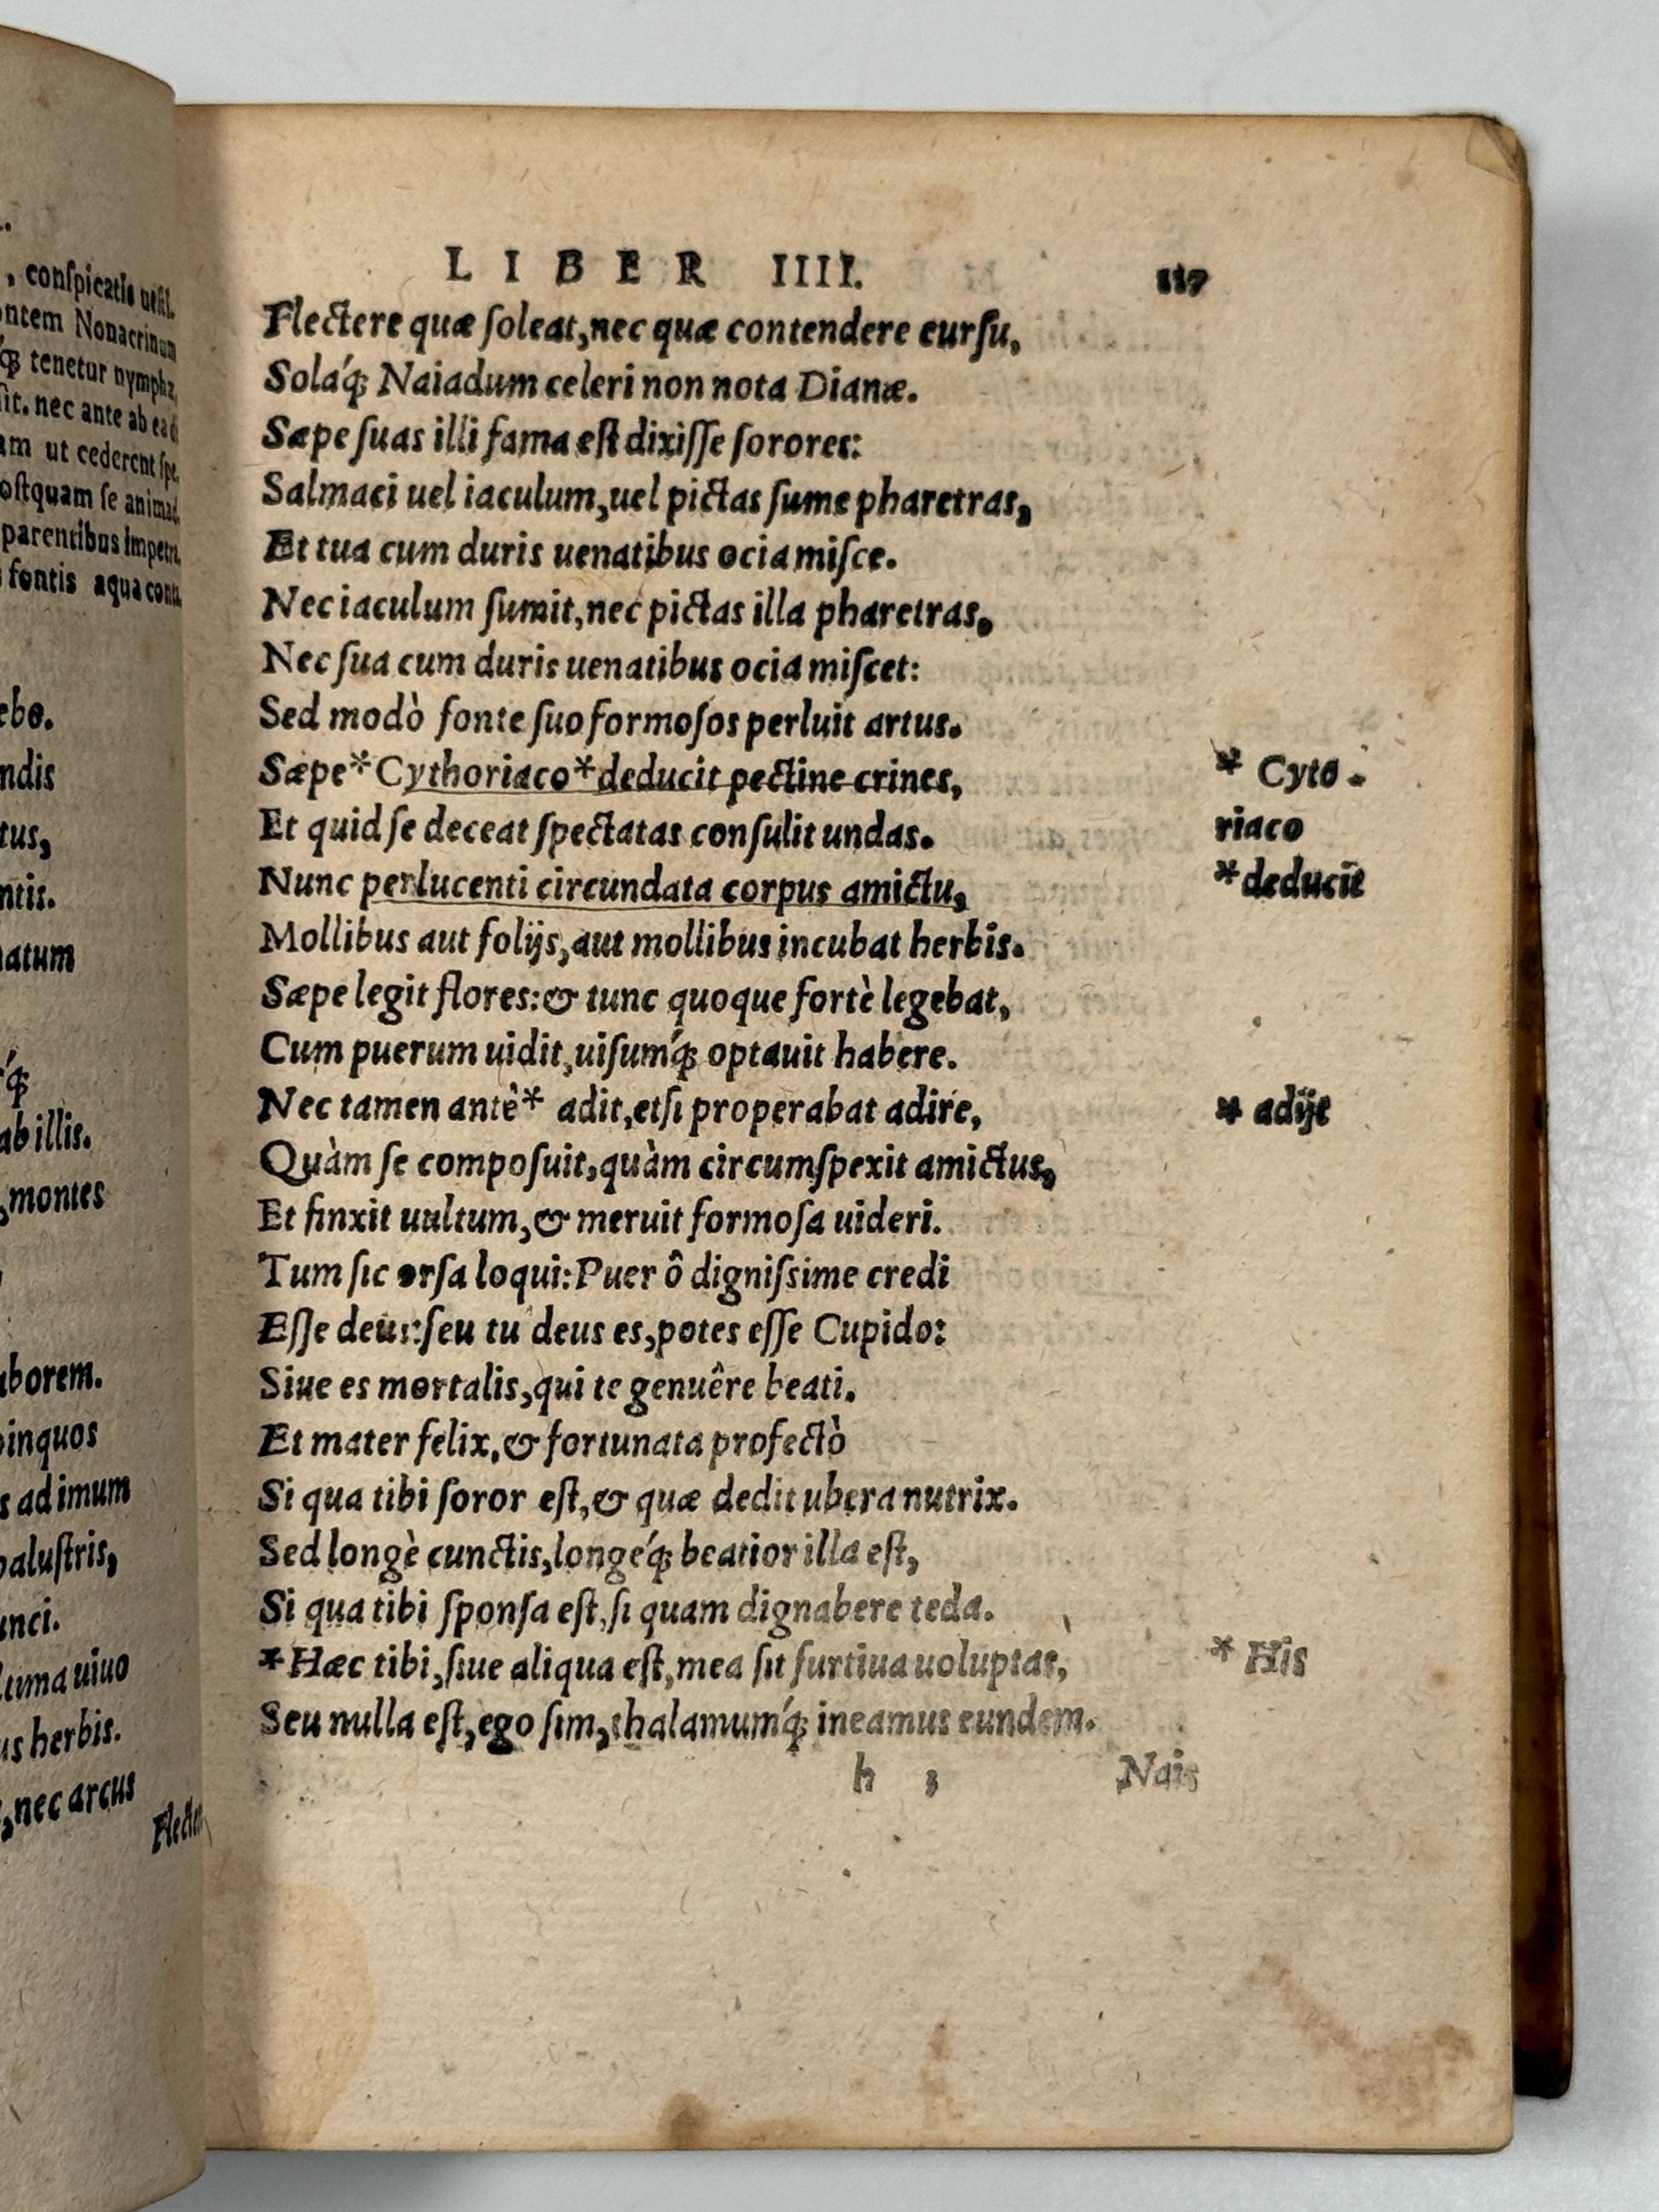 .
, conſpicatis
ontem Nonacrinum
q́; tenetur nympha,
ſit. nec ante ab ea
am ut cederent
oſtquam ſe
parentibus
fontis aqua
ebo.
ndis
tus,
ntis.
natum
q́;
ab illis.
,montes
aborem.
pinquos
s ad imum
paluſtris,
unci.
ltima uiuo
us herbis.
,nec arcus
LIBER IIII. 117
Flectere quæ ſoleat,nec quæ contendere curſu,
Solaq́; Naiadum celeri non nota Dianæ.
Sæpe ſuas illi fama eſt dixiſſe ſorores:
Salmaci uel iaculum,uel pictas ſume pharetras,
Et tua cum duris uenatibus ocia miſce.
Nec iaculum ſumit,nec pictas illa pharetras,
Nec ſua cum duris uenatibus ocia miſcet:
Sed modò fonte ſuo formoſos perluit artus.
Sæpe*Cythoriaco*deducit pectine crines, * Cyto-
Et quid ſe deceat ſpectatas conſulit undas. riaco
Nunc perlucenti circundata corpus amictu, *deducit
Mollibus aut folijs,aut mollibus incubat herbis.
Sæpe legit flores:& tunc quoque fortè legebat,
Cum puerum uidit,uiſumq́; optauit habere.
Nec tamen antè* adit,etſi properabat adire, * adijt
Quàm ſe compoſuit,quàm circumſpexit amictus,
Et finxit uultum,& meruit formoſa uideri.
Tum ſic orſa loqui:Puer ô digniſsime credi
Eſſe deus:ſeu tu deus es,potes eſſe Cupido:
Siue es mortalis,qui te genuêre beati.
Et mater felix,& fortunata profectò
Si qua tibi ſoror eſt,& quæ dedit ubera nutrix.
Sed longè cunctis,longeq́; beatior illa eſt,
Si qua tibi ſponſa eſt,ſi quam dignabere teda.
*Hæc tibi,ſiue aliqua eſt,mea ſit furtiua uoluptas, * His
Seu nulla eſt,ego ſim,thalamumq́; ineamus eundem.
h 3 Nais